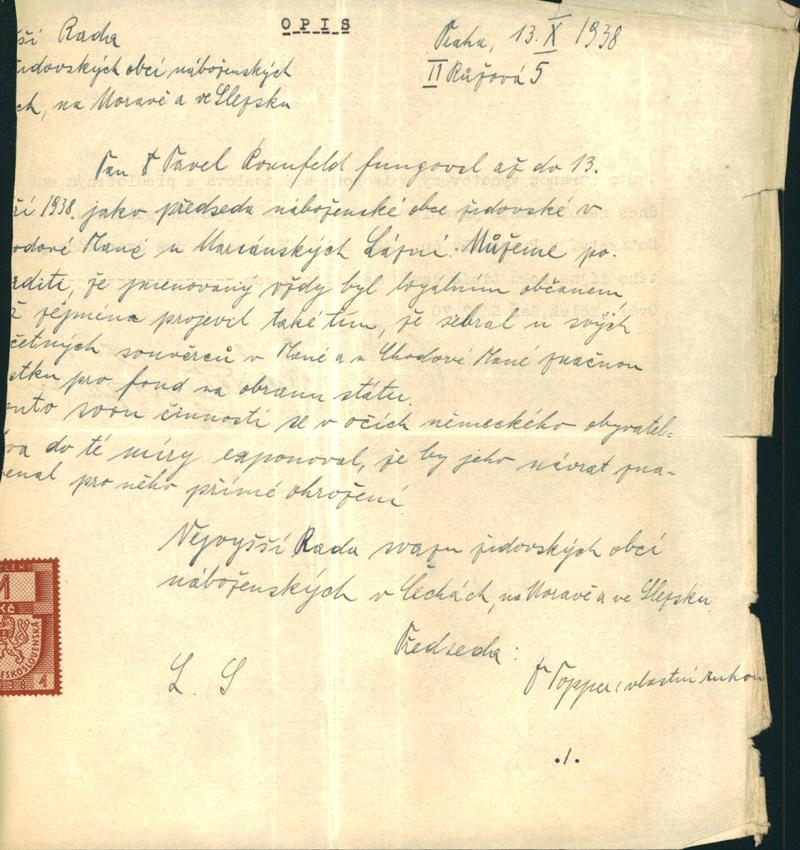 O P I S
ší Rada
židovských obcí náboženských
ch, na Moravě a ve Slezsku
Praha, 13. X 1938
II Růžová 5
Pan Pavel Kornfeld fungoval až do 13.
ří 1938. jako předseda náboženské obce židovské v
odové Plané u Mariánských Lázní. Můžeme po-
rditi, že jmenovaný vždy byl loyalním občanem,
ž zejména projevil také tím, že sebral u svých
četných souvěrců v Plané a v Chodové Plané značnou
stku pro fond na obranu státu.
outo svou činností se v očích německého obyvatel-
va do té míry exponoval, že by jeho návrat zna-
enal pro něho přímé ohrožení
Nejvyšší Rada svazu židovských obcí
náboženských v Čechách, na Moravě a ve Slezsku
Předseda:
L. S
Dr Popper, vlastní rukou
./.
1
KČ
ČESKOSLOVENSKÁ
1